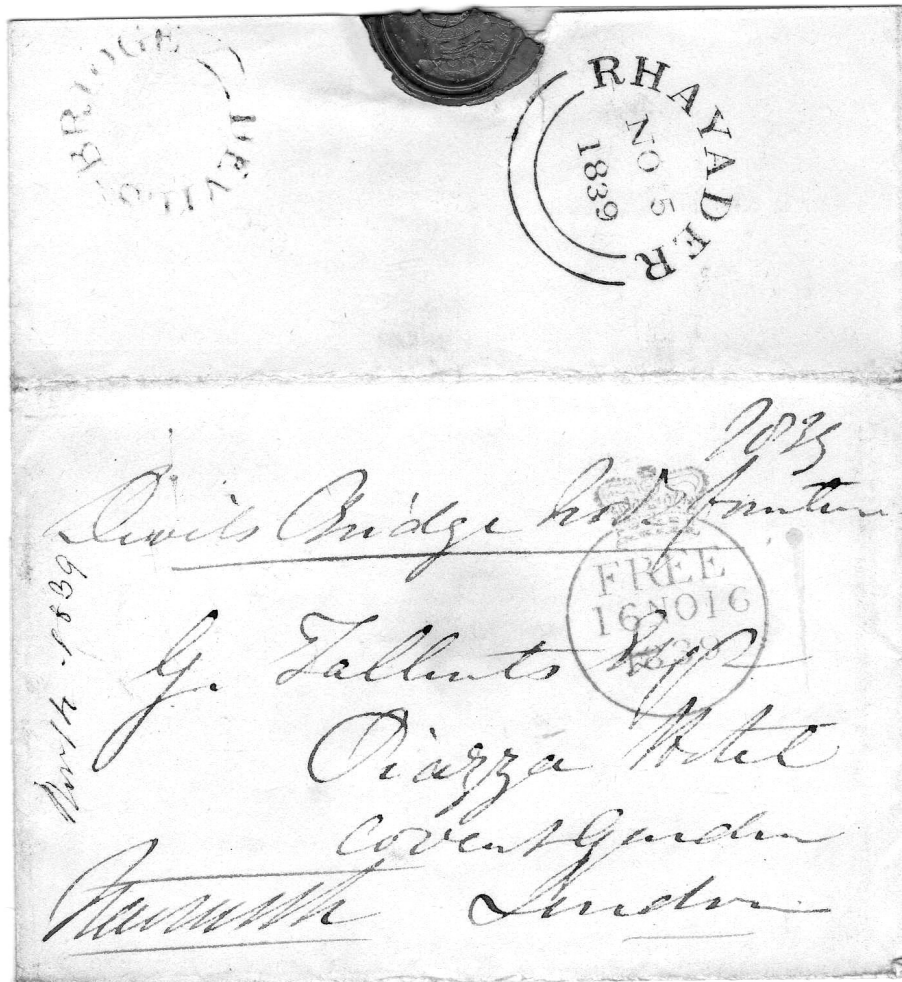 DEVILS BRIDGE
RHAYADER
NO 5
1839
1839
Devils Bridge Nov. fourteen
FREE
16 NO 16
1839
G. Tallents Esqr
Piazza Hotel
Covent Garden
London
1839